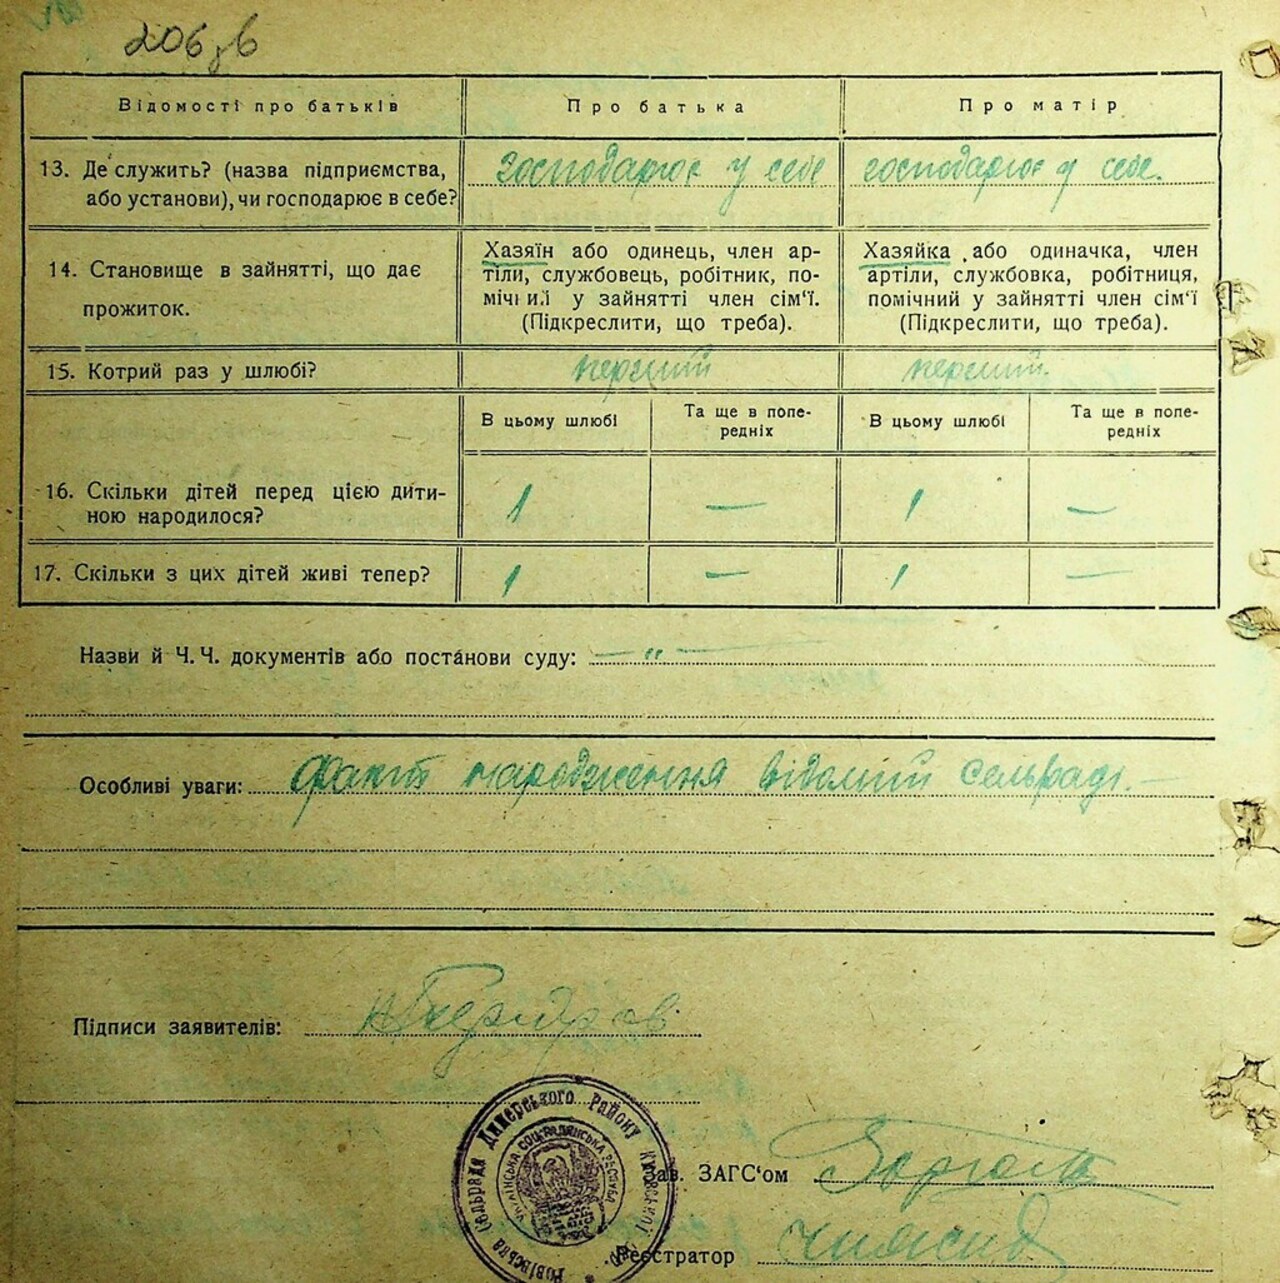 206 зв
Відомості про батьків
Про батька
Про матір
13. Де служить? (назва підприємства,
або установи), чи господарює в себе?
Господарює у себе
господарює у себе.
14. Становище в зайнятті, що дає
прожиток.
Хазяїн або одинець, член ар-
тіли, службовець, робітник, по-
мічний у зайнятті член сім'ї.
(Підкреслити, що треба).
Хазяйка, або одиначка, член
артіли, службовка, робітниця,
помічний у зайнятті член сім'ї
(Підкреслити, що треба).
15. Котрий раз у шлюбі?
перший
перший.
В цьому шлюбі
Та ще в попе-
редніх
В цьому шлюбі
Та ще в попе-
редніх
16. Скільки дітей перед цією дити-
ною народилося?
1 — 1 —
17. Скільки з цих дітей живі тепер?
1 — 1 —
Назви й Ч.Ч. документів або постанови суду: — „ —
Особливі уваги: Факт народження відомий сельраді. —
Підписи заявителів:
Сельрада Димерського Району
Зав. ЗАГС'ом
Реєстратор